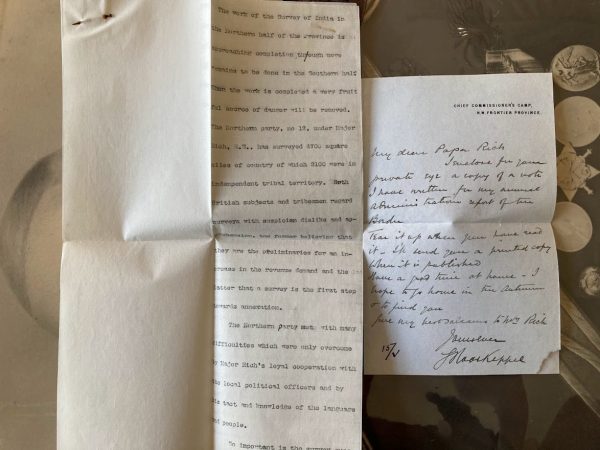 The work of the Survey of India in
the Northern half of the Province is
approaching completion through more
remains to be done in the Southern half
When the work is completed a very fruit
ful source of danger will be removed.
The Northern party, no 12, under Major
Rich, R.E., has surveyed 4700 square
miles of country of which were in
independent tribal territory. Both
British subjects and tribesmen regard
surveys with suspicion dislike and ap-
prehension, the former believing that
they are the preliminaries for an in-
crease in the revenue demand and the
latter that a survey is the first step
towards annexation.
The Northern party met with many
difficulties which were only overcome
by Major Rich's loyal cooperation with
the local political officers and by
his tact and knowledge of the language
and people.
So important is the survey
CHIEF COMMISSIONER'S CAMP,
N.W. FRONTIER PROVINCE.
My dear Papa Rich
I enclose for your
private eye a copy of a note
I have written for my annual
administration report of the
Border
Tear it up when you have read
it - I'll send you a printed copy
when it is published
Have a good time at home - I
hope to go home in the Autumn
& to find you
Give my best salaams to Mrs Rich
Yours ever
15/V
G Roos Keppel